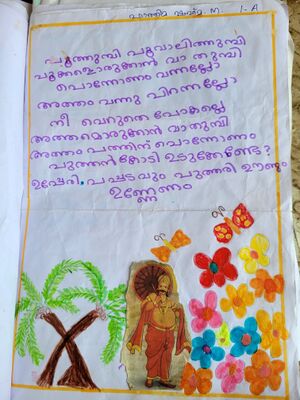 ഫാത്തിമ ഷഹ്മ. M. 1-A
പൂത്തുമ്പി പൂവാലിത്തുമ്പി
പൂക്കളൊരുക്കാൻ വാ തുമ്പി
പൊന്നോണം വന്നല്ലോ
അത്തം വന്നു പിറന്നല്ലോ
നീ വെറുതെ പോകല്ലെ
അത്തമൊരുക്കാൻ വാ തുമ്പി
അത്തം പത്തിന് പൊന്നോണം
പുത്തൻ കോടി ഉടുക്കേണ്ടേ?
ഉപ്പേരി, പപ്പടവും പുത്തരി ഊണും
ഉണ്ണേണം